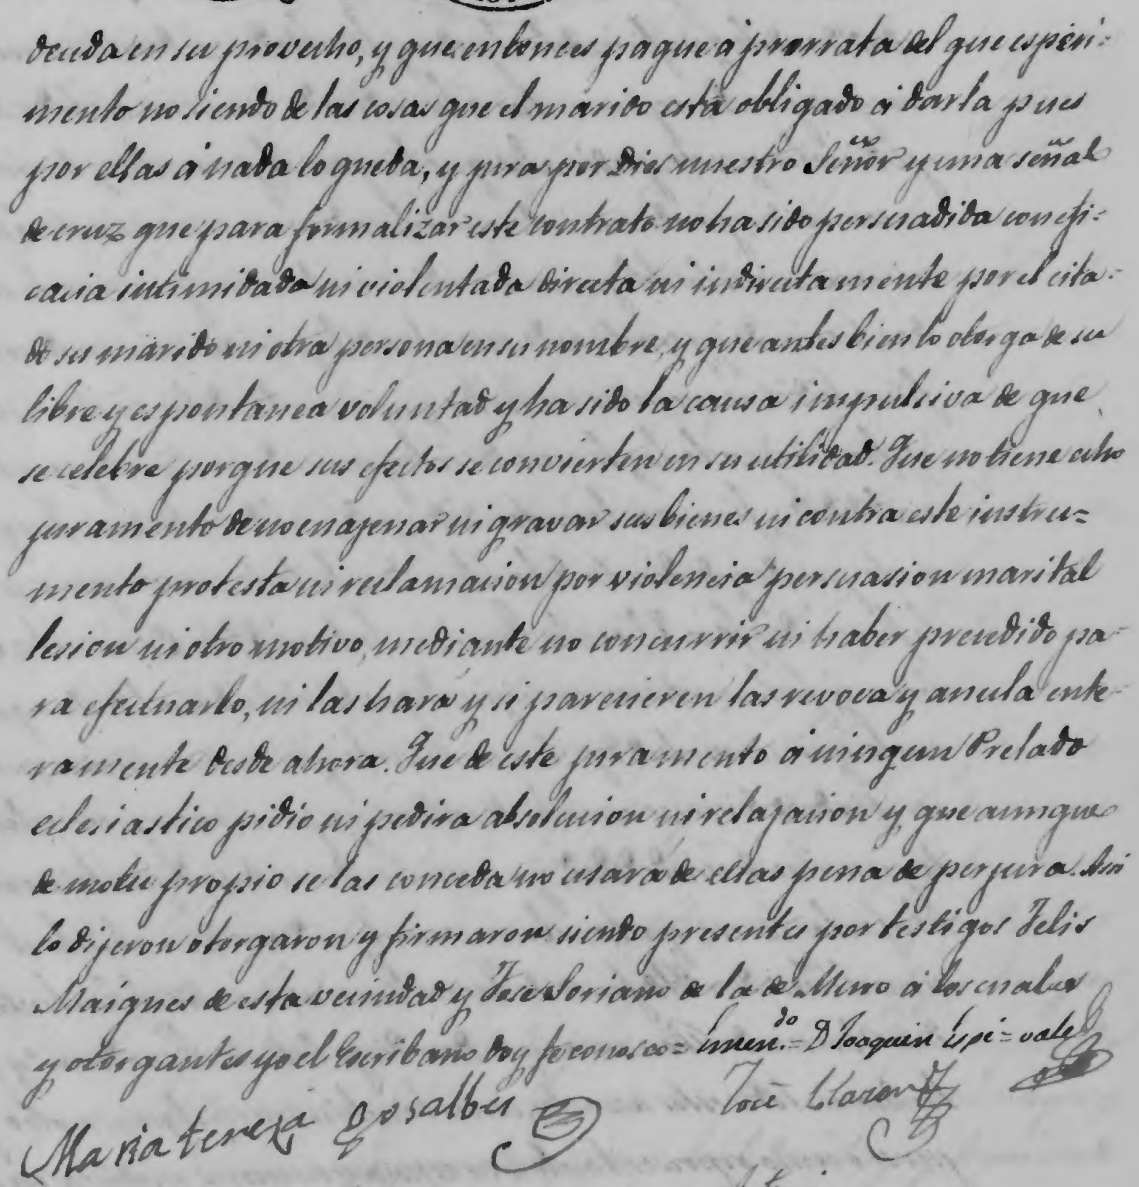 deuda en su provecho, y que entonces pague á prorrata del que esperi=
mento no siendo de las cosas que el marido está obligado á darla pues
por ellas á nada lo queda, y jura por Dios nuestro Señor y una señal
de cruz que para formalizar este contrato no ha sido persuadida con efi=
cacia intimidada ni violentada directa ni indirectamente por el cita=
do su marido ni otra persona en su nombre, y que antes bien lo otorga de su
libre y espontanea voluntad y ha sido la causa impulsiva de que
se celebre porque sus efectos se convierten en su utilidad. Que no tiene echo
juramento de no enajenar ni gravar sus bienes ni contra este instru=
mento protesta ni reclamacion por violencia persuasion marital
lesion ni otro motivo, mediante no concurrir ni haber precedido pa=
ra efectuarlo, ni las hará y si parecieren las revoca y anula ente=
ramente desde ahora. Que de este juramento á ningun Prelado
eclesiastico pidio ni pedira absolucion ni relajacion y que aunque
de motu propio se las conceda no usará de ellas pena de perjura. Asi
lo dijeron otorgaron y firmaron siendo presentes por testigos Felis
Maignes de esta vecindad y Jose Soriano de la de Muro á los cuales
y otorgantes yo el Escribano doy fe conosco = Emen.do = D Joaquin Espi = vale
Maria tereza Gosalbes
José Llorens